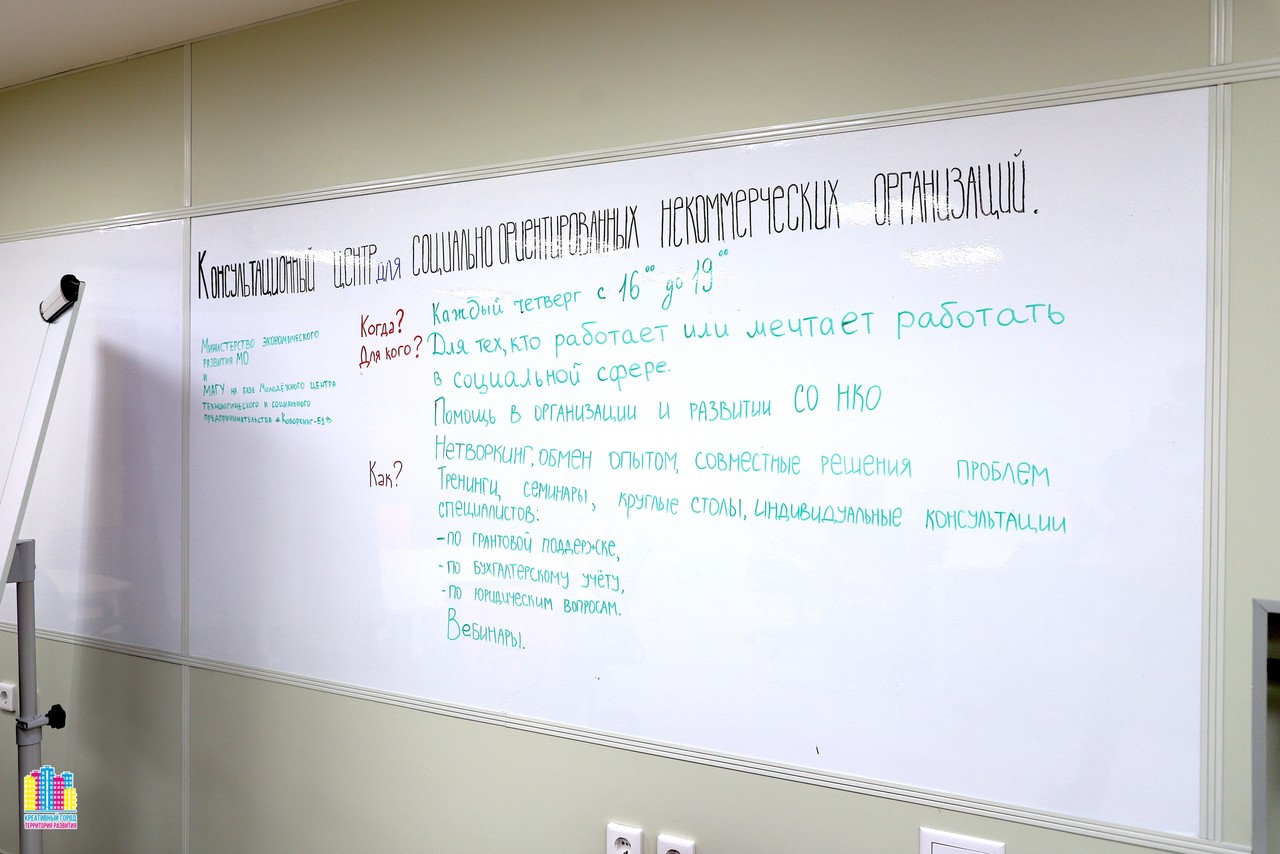 Консультационный центр для социально ориентированных некоммерческих организаций.
Министерство экономического
развития МО
и
МАГУ на базе Молодёжного центра
технологического и социального
предпринимательства «Коворкинг-51»
Когда?
Каждый четверг с 16⁰⁰ до 19⁰⁰
Для кого?
Для тех, кто работает или мечтает работать
в социальной сфере.
Помощь в организации и развитии СО НКО
Как?
Нетворкинг, обмен опытом, совместные решения проблем
Тренинги, семинары, круглые столы, индивидуальные консультации
специалистов:
-по грантовой поддержке,
-по бухгалтерскому учёту,
-по юридическим вопросам.
Вебинары.
КРЕАТИВНЫЙ ГОРОД
ТЕРРИТОРИЯ РАЗВИТИЯ